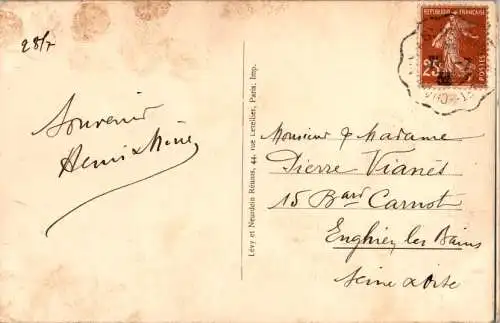 28/7
Souvenir
Henri &
RÉPUBLIQUE FRANÇAISE
25c
POSTES
Lévy et Neurdein Réunis, 44, rue Letellier, Paris, Imp.
Monsieur & Madame
Pierre Vianès
15 Bard Carnot
Enghien les Bains
Seine & Oise